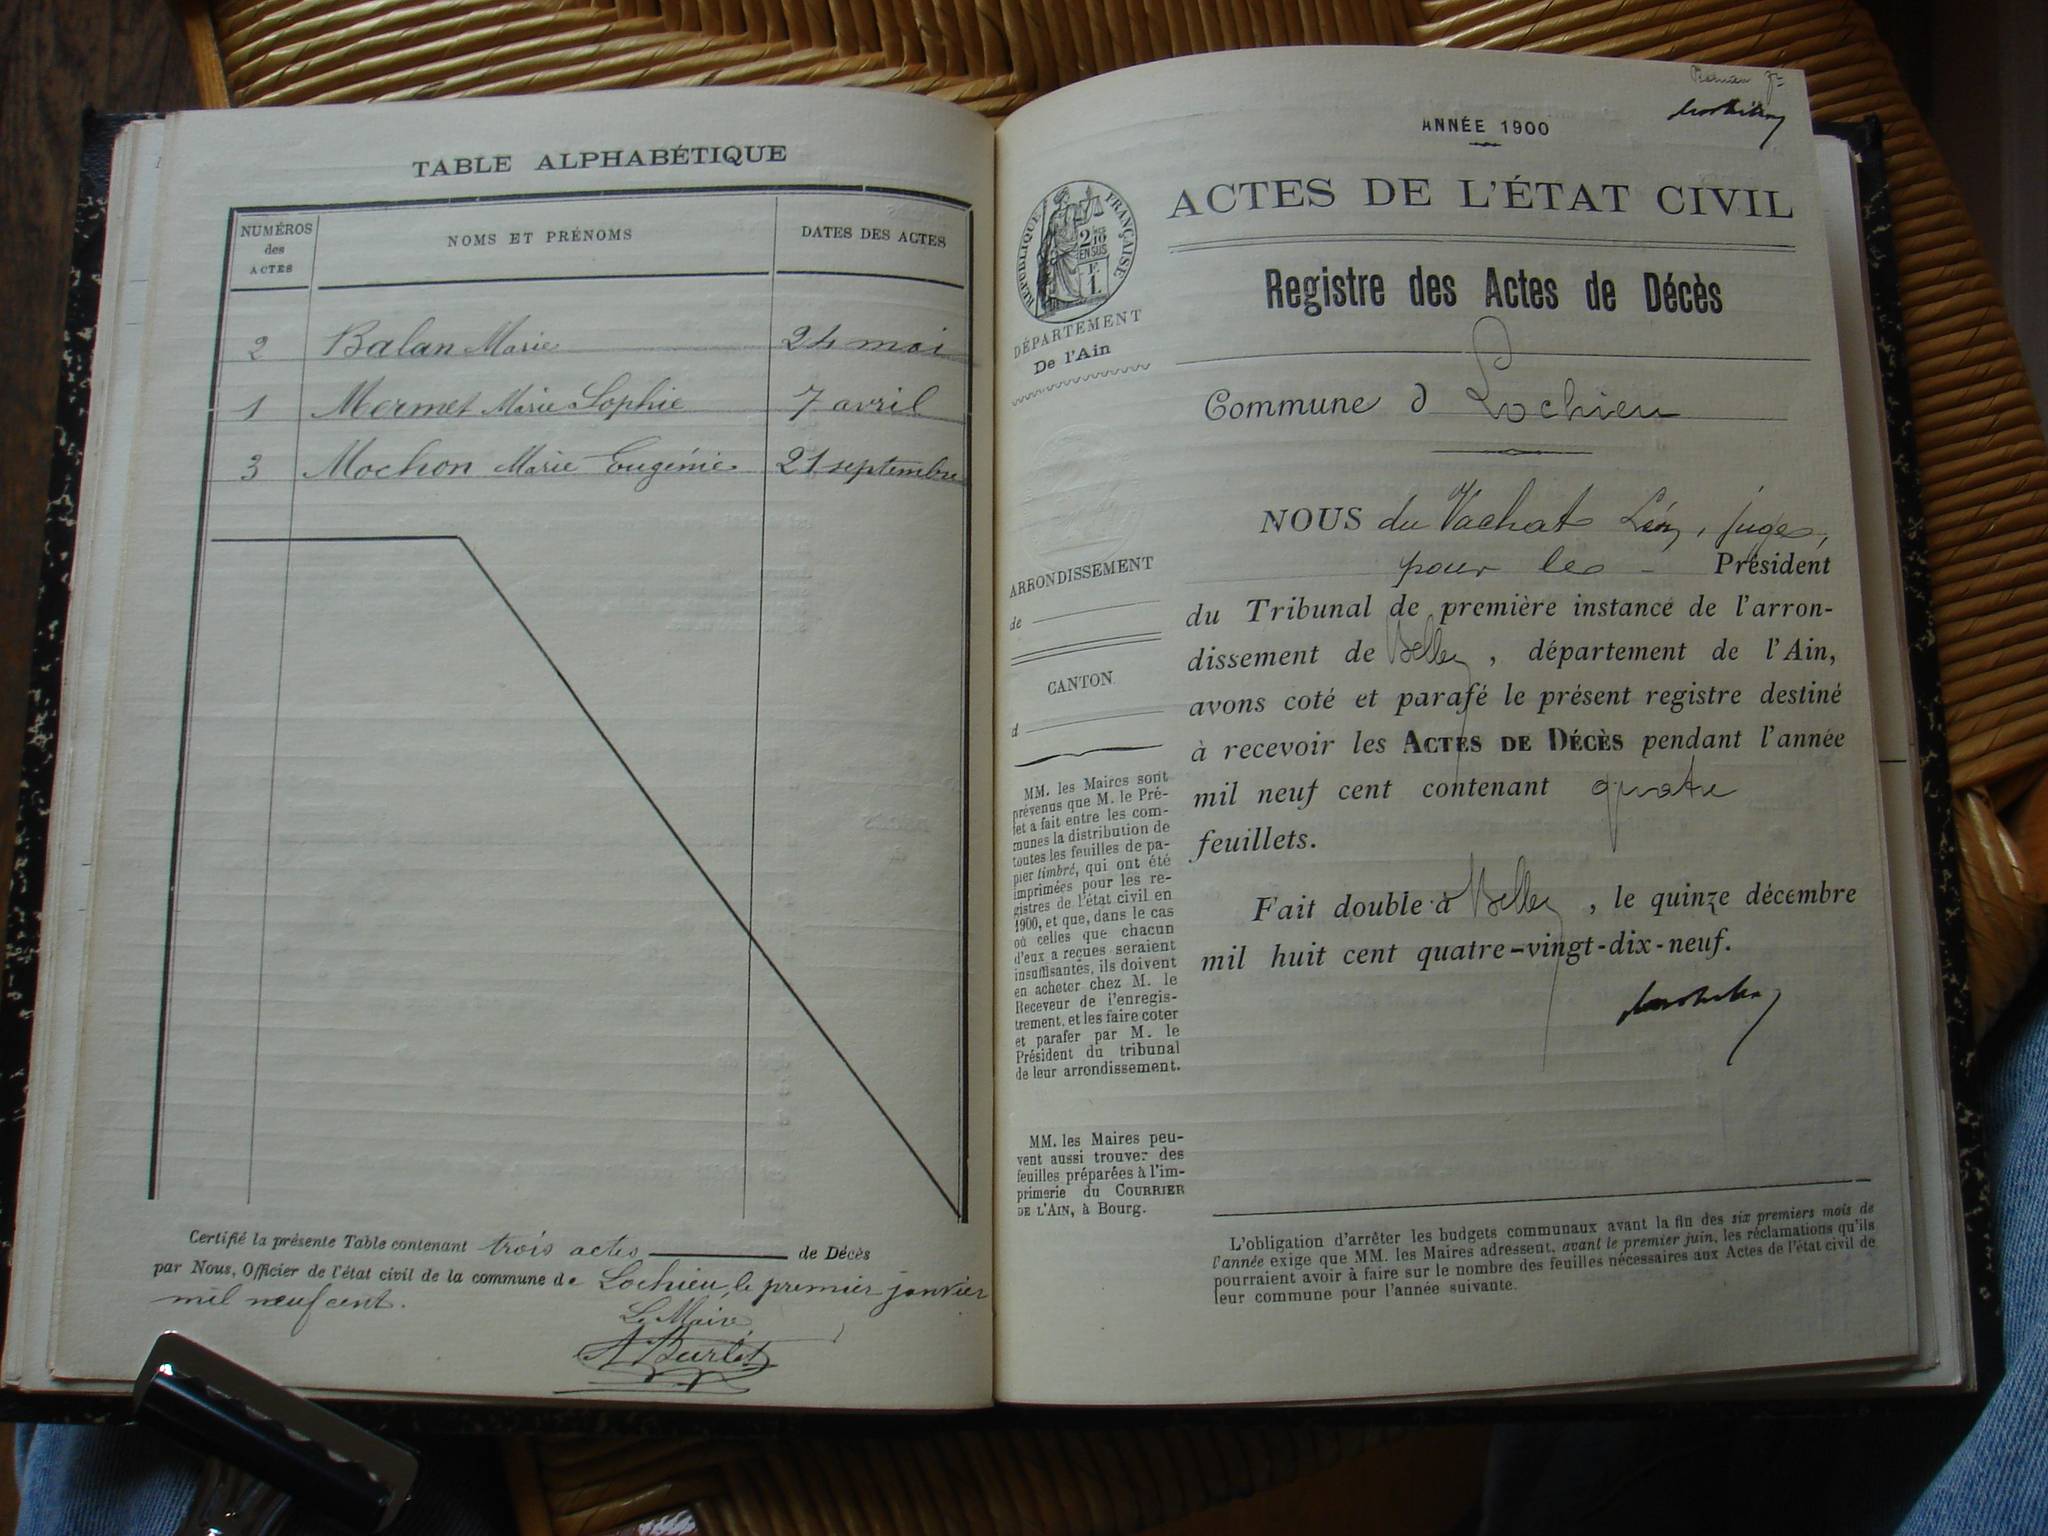 TABLE ALPHABÉTIQUE
NUMÉROS des ACTES
NOMS ET PRÉNOMS
DATES DES ACTES
2 Balan Marie 24 mai
1 Mermet Marie Sophie 7 avril
3 Mochon Marie Eugénie 21 septembre
Certifié la présente Table contenant trois actes de Décès
par Nous, Officier de l'état civil de la commune de Lochieu, le premier janvier
mil neuf cent.
Le Maire
ANNÉE 1900
ACTES DE L'ÉTAT CIVIL
RÉPUBLIQUE FRANÇAISE
2 10
EN SUS
F.
1.
DÉPARTEMENT
De l'Ain
Registre des Actes de Décès
Commune d Lochieu
ARRONDISSEMENT
de
CANTON
d
MM. les Maires sont
prévenus que M. le Pré-
fet a fait entre les com-
munes la distribution de
toutes les feuilles de pa-
pier timbré, qui ont été
imprimées pour les re-
gistres de l'état civil en
1900, et que, dans le cas
où celles que chacun
d'eux a reçues seraient
insuffisantes, ils doivent
en acheter chez M. le
Receveur de l'enregis-
trement, et les faire coter
et parafer par M. le
Président du tribunal
de leur arrondissement.
MM. les Maires peu-
vent aussi trouver des
feuilles préparées à l'im-
primerie du COURRIER
DE L'AIN, à Bourg.
NOUS du Vachat Léon, juge,
pour le Président
du Tribunal de première instance de l'arron-
dissement de Belley, département de l'Ain,
avons coté et parafé le présent registre destiné
à recevoir les ACTES DE DÉCÈS pendant l'année
mil neuf cent contenant quatre
feuillets.
Fait double à Belley, le quinze décembre
mil huit cent quatre-vingt-dix-neuf.
L'obligation d'arrêter les budgets communaux avant la fin des six premiers mois de
l'année exige que MM. les Maires adressent, avant le premier juin, les réclamations qu'ils
pourraient avoir à faire sur le nombre des feuilles nécessaires aux Actes de l'état civil de
leur commune pour l'année suivante.